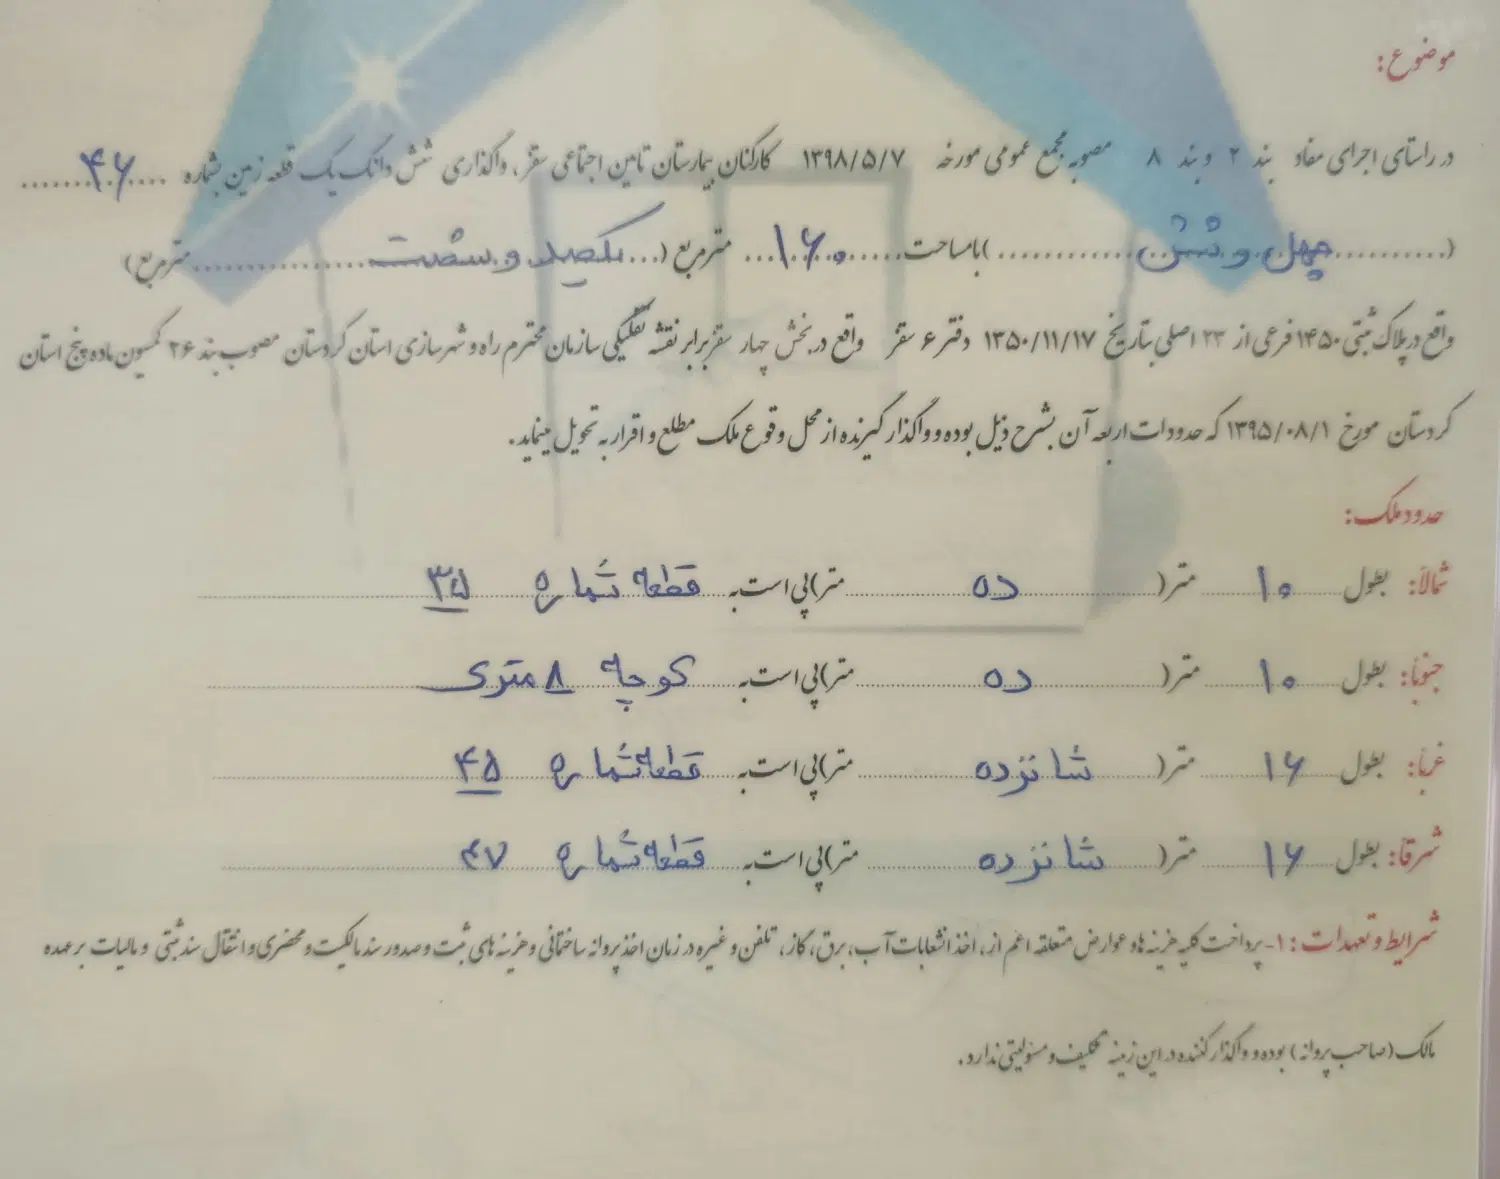 موضوع:
در راستای اجرای مفاد بند ۲ و بند ۸ مصوبه مجمع عمومی مورخه ۱۳۹۸/۵/۷ کارکنان بیمارستان تامین اجتماعی سقز، واگذاری شش دانگ یک قطعه زمین بشماره ....۴۶....
(..........چهل و شش..........) با مساحت......۱۶۰...... مترمربع (...یکصد و شصت..........مترمربع)
واقع در پلاک ثبتی ۱۴۵۰ فرعی از ۲۳ اصلی بتاریخ ۱۳۵۰/۱۱/۱۷ دفتر ۶ سقز واقع در بخش چهار سقز برابر نقشه تفکیکی سازمان محترم راه و شهرسازی استان کردستان مصوب بند ۲۶ کمسیون ماده پنج استان
کردستان مورخ ۱۳۹۵/۰۸/۱ که حدودات اربعه آن بشرح ذیل بوده و واگذار گیرنده از محل وقوع ملک مطلع و اقرار به تحویل مینماید.
حدود ملک:
شمالاً: بطول ۱۰ متر( ده متر)پی است به قطعه شماره ۳۵
جنوباً: بطول ۱۰ متر( ده متر)پی است به کوچه ۸ متری
غرباً: بطول ۱۶ متر( شانزده متر)پی است به قطعه شماره ۴۵
شرقاً: بطول ۱۶ متر( شانزده متر)پی است به قطعه شماره ۴۷
شرایط و تعهدات: ۱- پرداخت کلیه هزینه ها و عوارض متعلقه اعم از، اخذ انشعابات آب، برق، گاز، تلفن و غیره در زمان اخذ پروانه ساختمانی و هزینه های ثبت و صدور سند مالکیت و محضری و انتقال سند ثبتی و مالیات بر عهده
مالک (صاحب پروانه) بوده و واگذار کننده در این زمینه تکلیف و مسئولیتی ندارد.